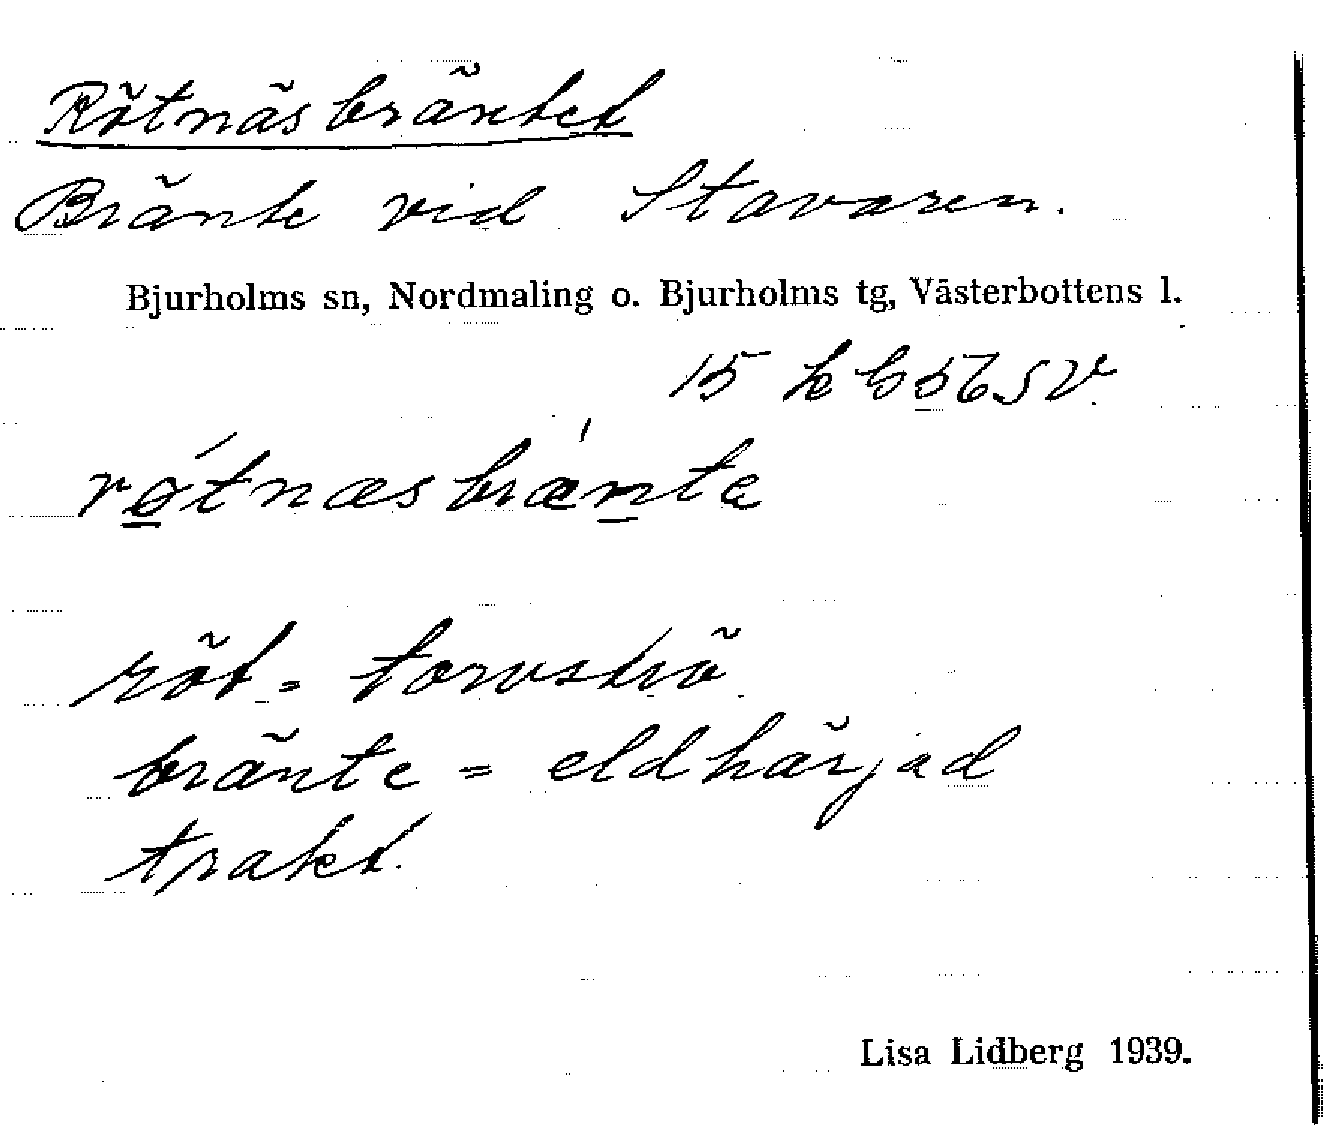 Rötnäsbräntet
Bränte vid Stavaren.
Bjurholms sn, Nordmaling o. Bjurholms tg, Västerbottens l.
15 k G 56 SV.
rǿ̱tnæsbræṉta
röt = torvströ
bränte = eldhärjad
trakt.
Lisa Lidberg 1939.